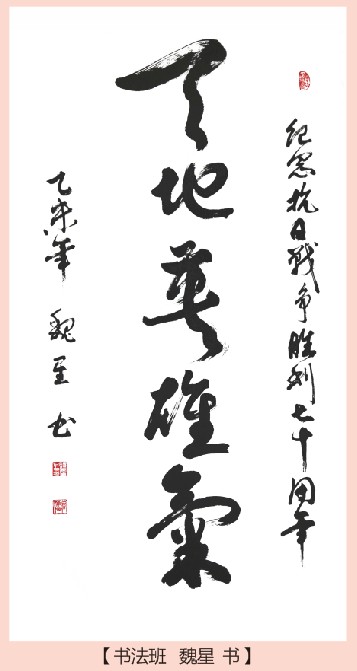 纪念抗日战争胜利七十周年
天地英雄氣
乙未年 魏星 书
【书法班 魏星 书】